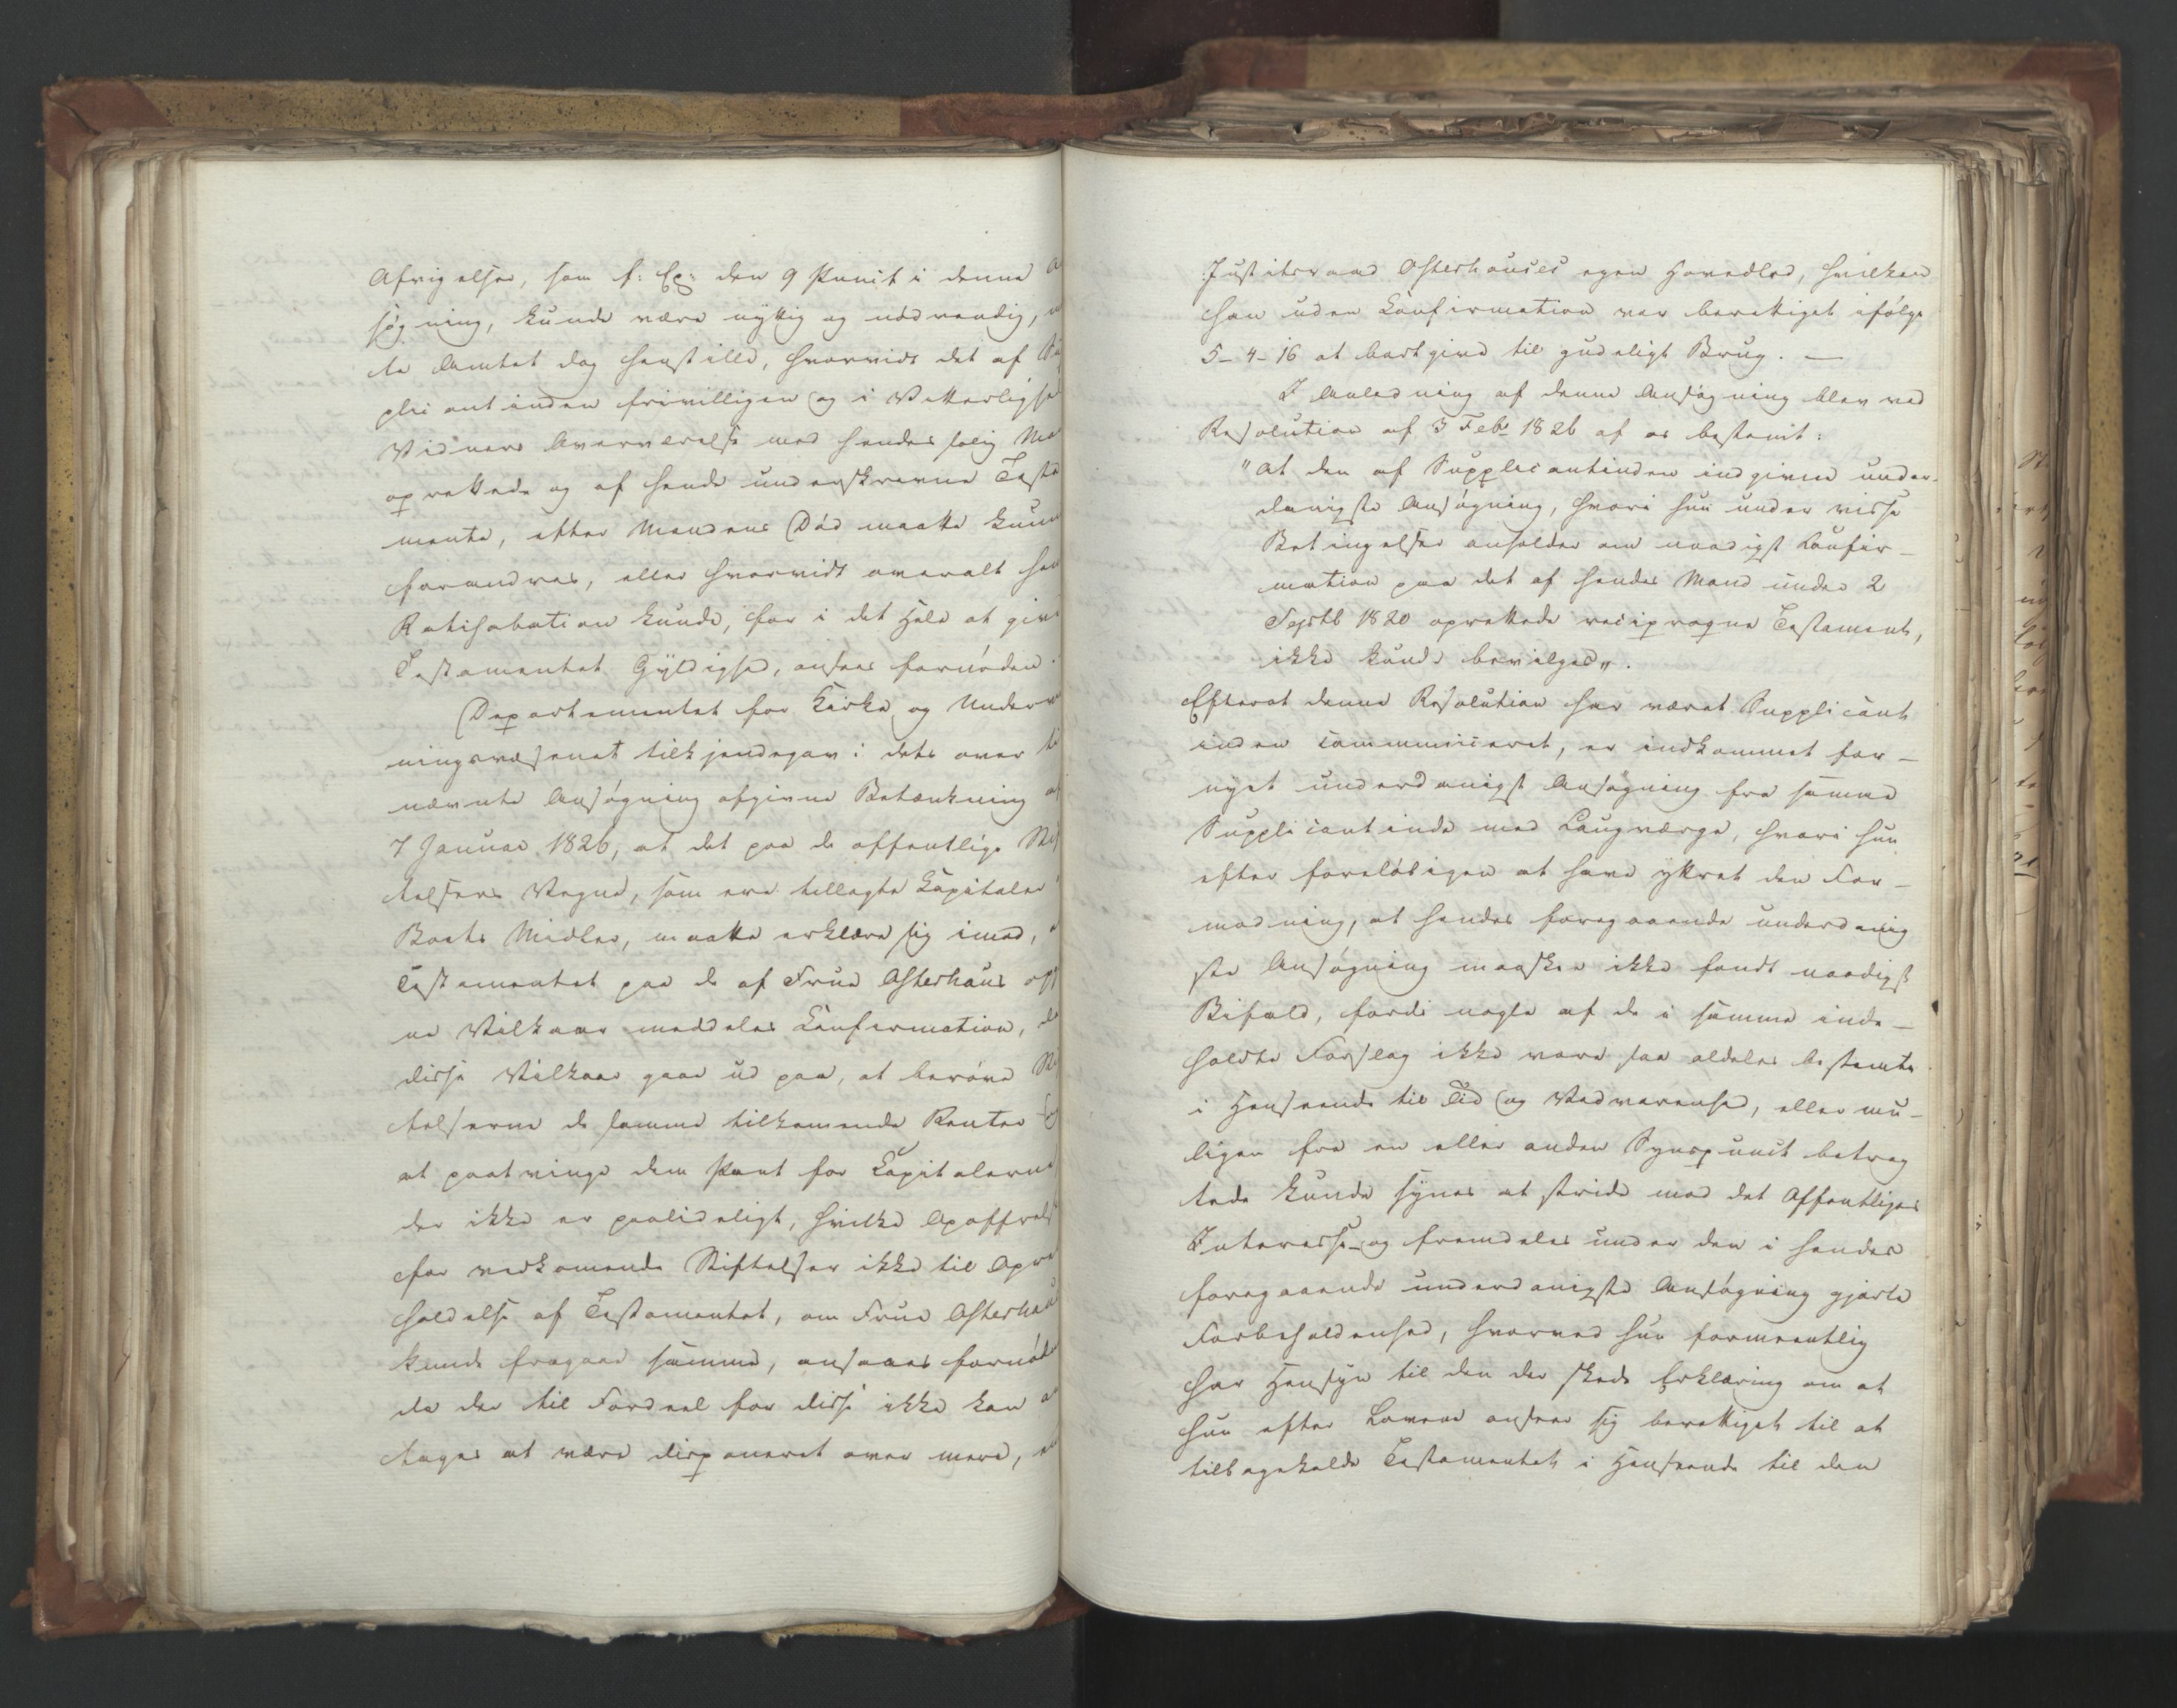 Afvigelser, som f: Ex: den 9 Punct i denne A
søgning, kunde være nyttig og nødvendig, m
te Amtet dog henstille, hvorvidt det af Su
plicantinden frivilligen og i Vitterligheds
Vidners Overværelse med hendes salig Ma
oprettede og af hende underskrevne Testa
mente, efter Mandens Død maatte kunn
forandres, eller hvorvidt overalt hen
Ratihabation kunde, for i det Hele at give
Testamentet Gyldighed, ansees fornøden.
Departementet for Kirke og Underv
ningsvæsenet tilkjendegav i dets over bi
nævnte Ansøgning afgivne Betænkning af
7 Januar 1826, at det paa de offentlige Stif
telsers Vegne, som ere tillagte Capitaler
Boets Midler, maatte erklære sig imod, a
Testamentet paa de af Frue Osterhaus opg
ne Vilkaar meddeles Confirmation, da
disse Vilkaar gaae ud paa, at berøve Sti
telserne de samme tilkomende Renter og
at paatvinge dem Pant for Capitalerne
der ikke er paalideligt, hvilke Opoffrels
for vedkomende Stiftelser ikke til Opre
holdelse af Testamentet, om Frue Osterhau
kunde fragaae samme, ansaaes fornød
da der til Fordeel for disse ikke kan a
tages at være disponeret over mere, en
Justitsraad Osterhauses egen Hovedlod, hvilken
han uden Confirmation var berettiget ifølge
5-4-16 at bortgive til gudeligt Brug. —
I Anledning af denne Ansøgning blev ved
Resolution af 3 Febr 1826 af os bestemt:
"at den af Supplicantinden indgivne under-
danigste Ansøgning, hvori hun under visse
Betingelser anholder om naadigst Confir-
mation paa det af hendes Mand under 2
Septb 1820 oprettede reciproqve Testament,
ikke kunde bevilges".
Efterat denne Resolution har været Supplicant
inden communiceret, er indkommet for-
nyet underdanigst Ansøgning fra samme
Supplicantinde med Laugværge, hvori hun
efter foreløbigen at have yttret den For-
modning, at hendes foregaaende underdanig
ste Ansøgning maaskee ikke fandt naadigst
Bifald, fordi nogle af de i samme inde-
holdte Forslag ikke vare saa aldeles bestemte
i Henseende til Tid og Vedvarenhed, eller mu-
ligen fra en eller anden Synspunct betrag
tede kunde synes at stride mod det Offentliges
Interesse - og fremdeles under den i hendes
foregaaende underdanigste Ansøgning gjorte
Forbeholdenhed, hvorved hun formeentlig
har Hensyn til den der skede Erklæring om at
hun efter Lovene anseer sig berettiget til at
tilbagekalde Testamentet i Henseende til den